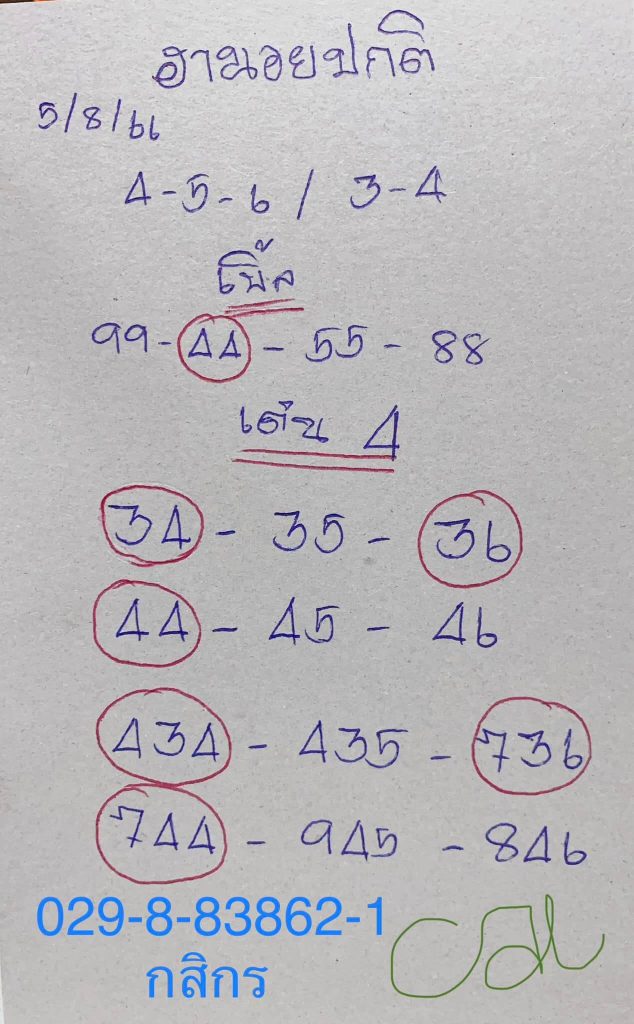 ฮานอยปกติ
5/8/66
4-5-6 / 3-4
เบิ้ล
99-44-55-88
เด่น 4
34-35-36
44-45-46
434-435-736
744-945-846
029-8-83862-1
กสิกร